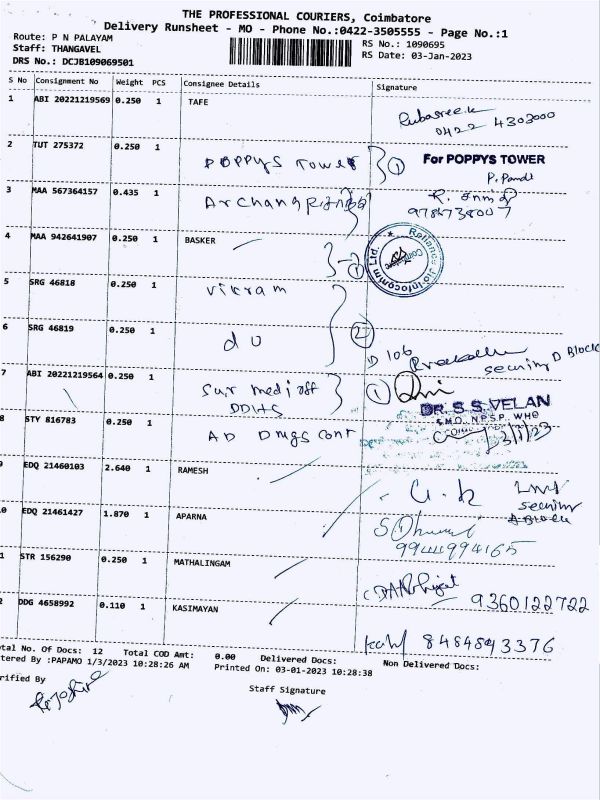 THE PROFESSIONAL COURIERS, Coimbatore
Delivery Runsheet - MO - Phone No.:0422-3505555 - Page No.:1
Route: P N PALAYAM
RS No.: 1090695
Staff: THANGAVEL
RS Date: 03-Jan-2023
DRS No.: DCJB109069501
S No Consignment No Weight PCS Consignee Details Signature
1 ABI 20221219569 0.250 1 TAFE
0422 4303000
2 TUT 275372 0.250 1 POPPYS Tower 1 For POPPYS TOWER
P. Pandi
3 MAA 567364157 0.435 1
4 MAA 942641907 0.250 1 BASKER
Reliance Jio Infocomm Ltd.
Coimbatore
5 SRG 46818 0.250 1 Vikram
6 SRG 46819 0.250 1 do 2
D 106
security D Block
7 ABI 20221219564 0.250 1 Sur medi off 1
DDHS
DR. S.S. VELAN
S.M.O. N.P.S.P. WHO
3/1/23
8 STY 816783 0.250 1 AD Drugs cont
9 EDQ 21460103 2.640 1 RAMESH
G. k
security
A Block
0 EDQ 21461427 1.870 1 APARNA
9944994165
1 STR 156290 0.250 1 MATHALINGAM
9360122722
2 DDG 4658992 0.110 1 KASIMAYAN
8484893376
otal No. Of Docs: 12 Total COD Amt: 0.00 Delivered Docs: Non Delivered Docs:
tered By :PAPAMO 1/3/2023 10:28:26 AM Printed On: 03-01-2023 10:28:38
rified By
Staff Signature